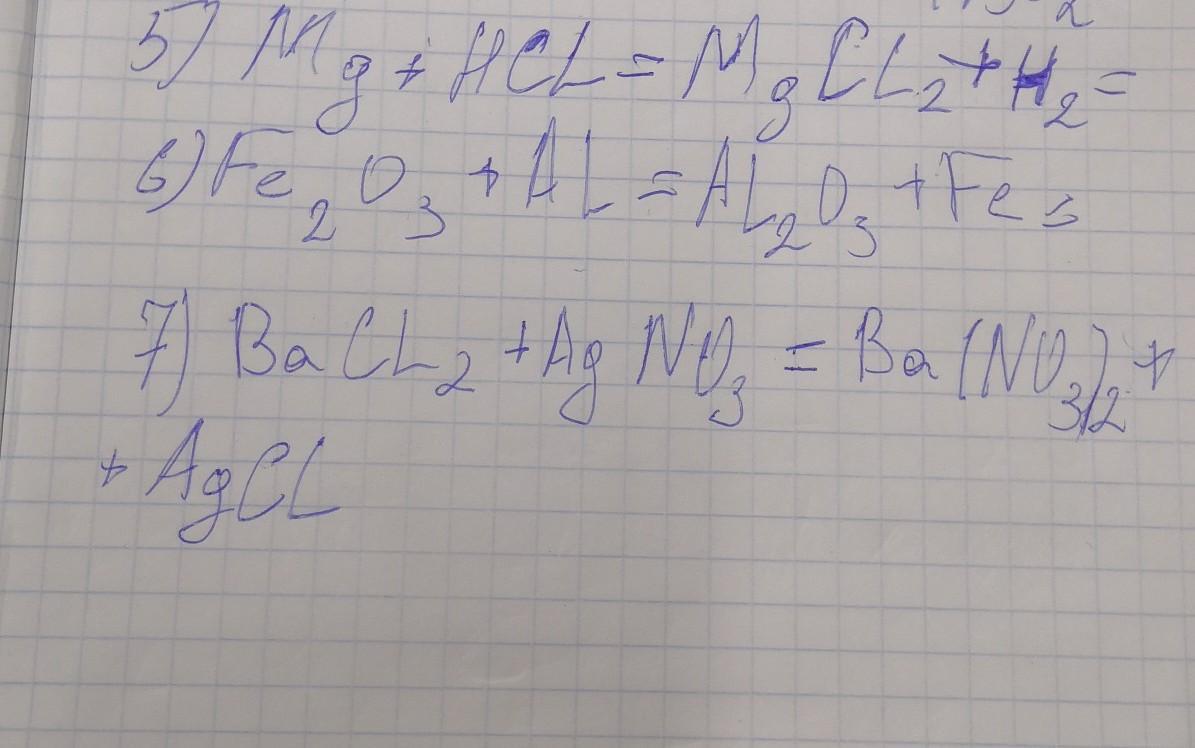 5) Mg + HCL = MgCL₂ + H₂ =
6) Fe₂O₃ + AL = AL₂O₃ + Fe =
7) BaCL₂ + AgNO₃ = Ba(NO₃)₂ +
+ AgCL